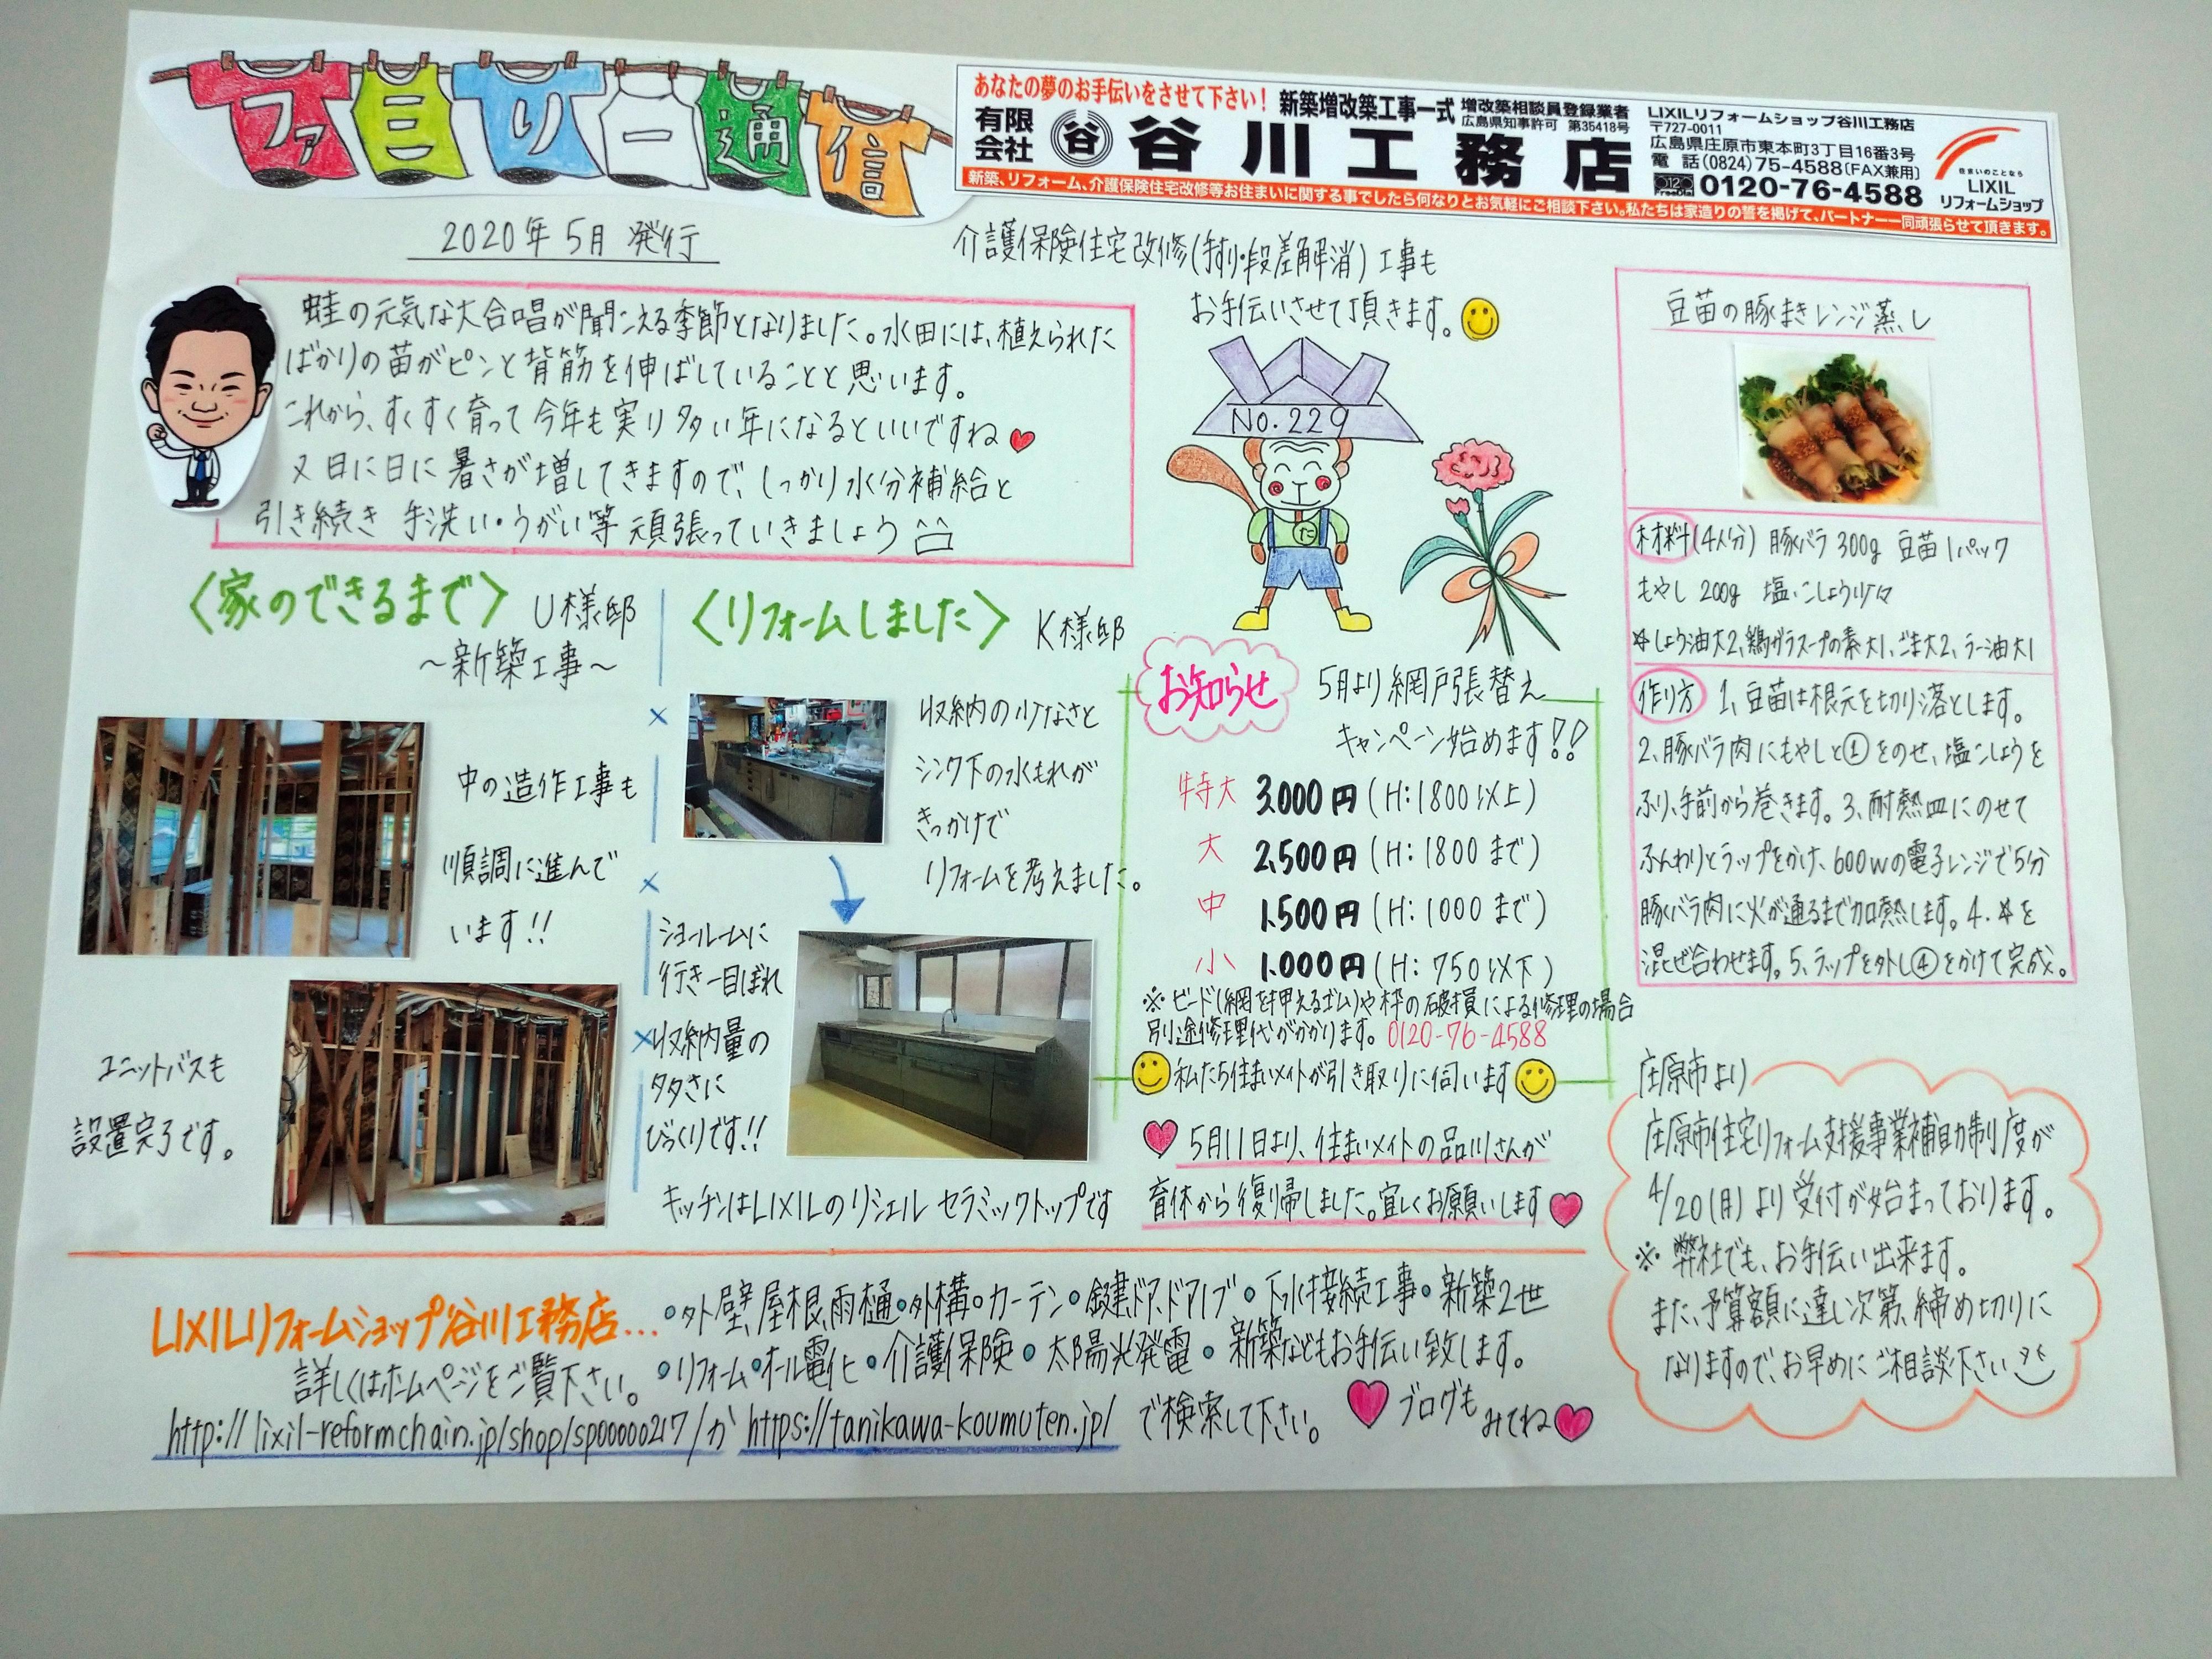 ファミリー通信
あなたの夢のお手伝いをさせて下さい！ 新築増改築工事一式 増改築相談員登録業者
広島県知事許可 第35418号
有限会社 谷 谷川工務店
LIXILリフォームショップ谷川工務店
〒727-0011
広島県庄原市東本町3丁目16番3号
電 話 (0824)75-4588〔FAX兼用〕
0120-76-4588
住まいのことなら
LIXIL
リフォームショップ
新築、リフォーム、介護保険住宅改修等お住まいに関する事でしたら何なりとお気軽にご相談下さい。私たちは家造りの誓を掲げて、パートナー一同頑張らせて頂きます。
2020年5月 発行
介護保険住宅改修(手すり・段差解消)工事も
お手伝いさせて頂きます。
蛙の元気な大合唱が聞こえる季節となりました。水田には、植えられた
ばかりの苗がピンと背筋を伸ばしていることと思います。
これから、すくすく育って今年も実り多い年になるといいですね
又日に日に暑さが増してきますので、しっかり水分補給と
引き続き 手洗い・うがい等頑張っていきましょう
No.229
た
〈家のできるまで〉 U様邸
～新築工事～
中の造作工事も
順調に進んで
います!!
ユニットバスも
設置完了です。
〈リフォームしました〉 K様邸
収納の少なさと
シンク下の水もれが
きっかけで
リフォームを考えました。
ショールームに
行き一目ぼれ
収納量の
多さに
びっくりです!!
キッチンはLIXILのリシェル セラミックトップです
お知らせ 5月より網戸張替え
キャンペーン始めます!!
特大 3.000円(H:1800以上)
大 2.500円(H:1800まで)
中 1.500円(H:1000まで)
小 1.000円(H:750以下)
※ビード(網を押えるゴム)や枠の破損による修理の場合
別途修理代がかかります。0120-76-4588
私たち住まいメイトが引き取りに伺います
5月11日より、住まいメイトの品川さんが
育休から復帰しました。宜しくお願いします
豆苗の豚まきレンジ蒸し
材料(4人分) 豚バラ300g 豆苗1パック
もやし 200g 塩・こしょう少々
☆しょう油大2、鶏ガラスープの素大1、ごま大2、ラー油大1
作り方 1、豆苗は根元を切り落とします。
2、豚バラ肉にもやしと①をのせ、塩こしょうを
ふり、手前から巻きます。3、耐熱皿にのせて
ふんわりとラップをかけ、600wの電子レンジで5分
豚バラ肉に火が通るまで加熱します。4.☆を
混ぜ合わせます。5、ラップを外し④をかけて完成。
庄原市より
庄原市住宅リフォーム支援事業補助制度が
4/20(月)より受付が始まっております。
※ 弊社でも、お手伝い出来ます。
また、予算額に達し次第、締め切りに
なりますので、お早めにご相談下さい
LIXILリフォームショップ谷川工務店…・外壁、屋根、雨樋・外構・カーテン・鍵、ドア、ドアノブ・下水接続工事・新築2世
詳しくはホームページをご覧下さい。・リフォーム・オール電化・介護保険・太陽光発電・新築などもお手伝い致します。
http://lixil-reformchain.jp/shop/sp00000217/か https://tanikawa-koumuten.jp/ で検索して下さい。 ブログも
みてね